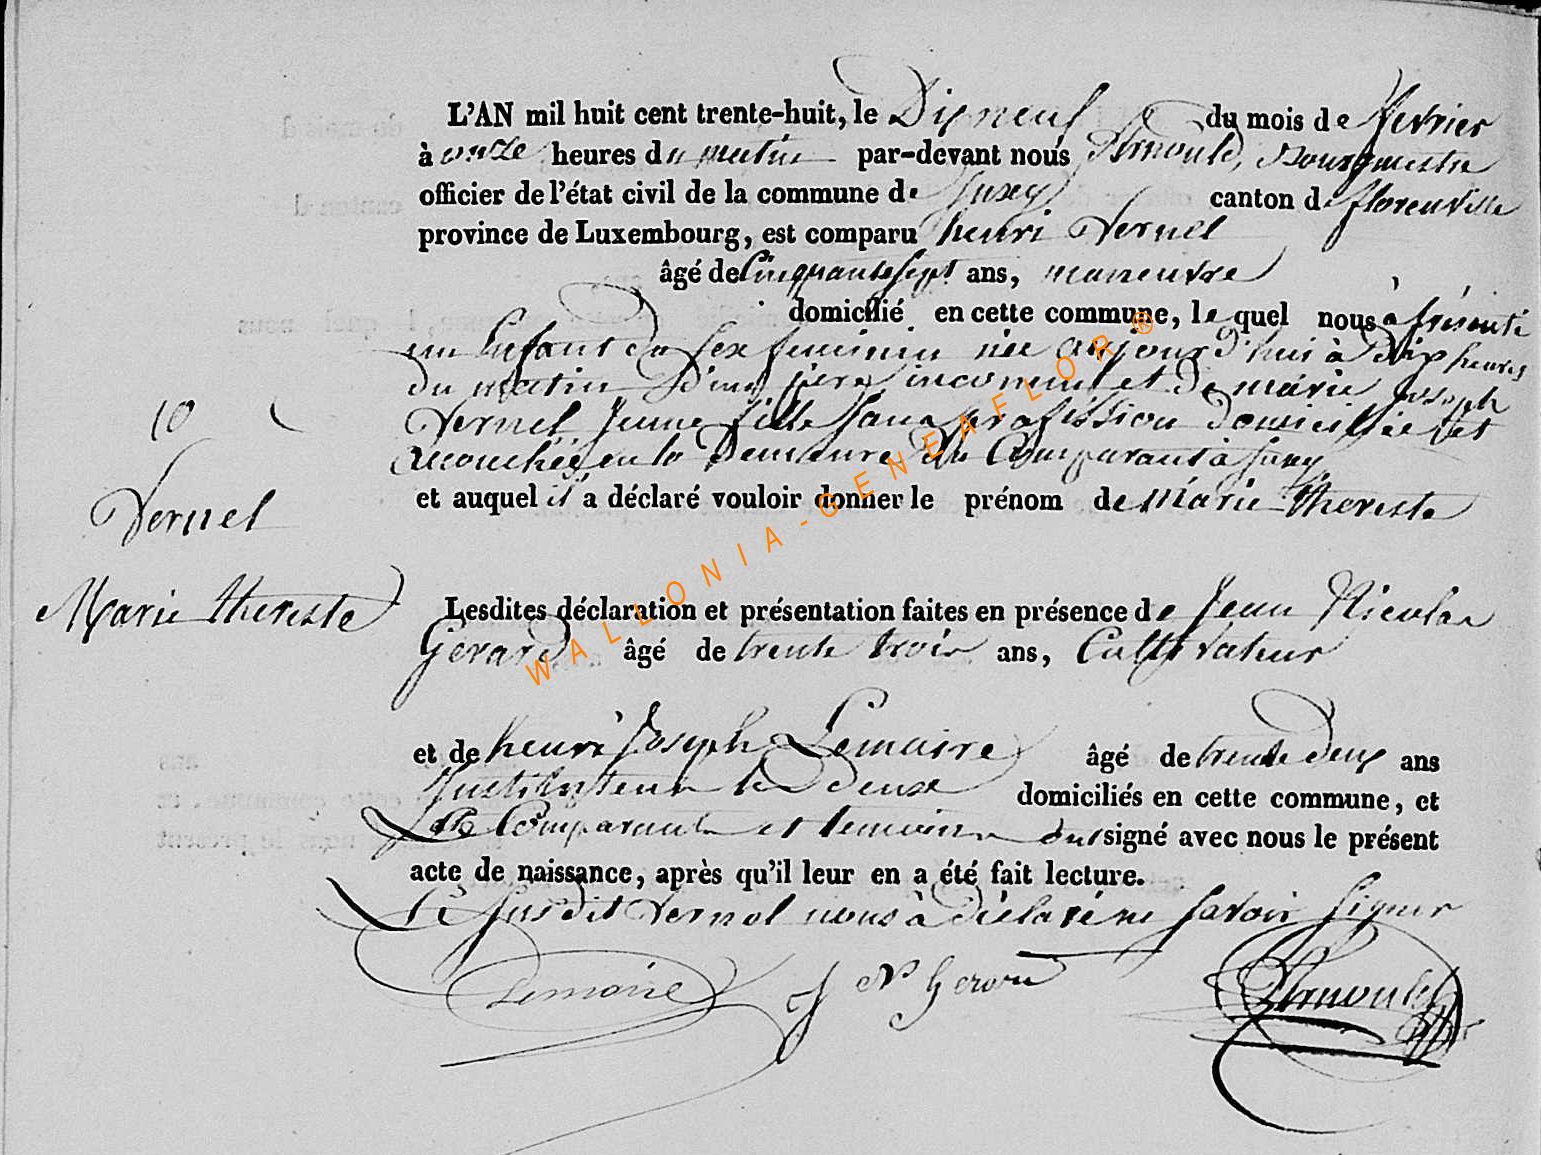 L'AN mil huit cent trente-huit, le Dix neuf du mois de fevrier
à onze heures du matin par-devant nous Arnould, Bourgmestre
officier de l'état civil de la commune de Suxey canton de florenville
province de Luxembourg, est comparu henri Vernel
âgé de Cinquante sept ans, maneuvre
domicilié en cette commune, le quel nous à présenté
un Enfant du sex feminin née aujourd'hui à Dix heures
du matin d'un pere inconnu et De marie joseph
Vernel jeune fille sans profission domiciliée et
acouchée en la Demeure du Comparant à Suxey
et auquel il a déclaré vouloir donner le prénom de Marie thereste
10
Vernel
Marie thereste
Lesdites déclaration et présentation faites en présence de Jean Nicolas
Gerard âgé de trente trois ans, Cultivateur
et de henri Joseph Lemaire âgé de trente Deux ans
Instituteur les deux domiciliés en cette commune, et
Comparant et temoins ont signé avec nous le présent
acte de naissance, après qu'il leur en a été fait lecture.
Le Susdit Vernel nous à Déclaré ne savoir signer
Lemaire J N Gerard Arnould
WALLONIA-GENEAFLOR®